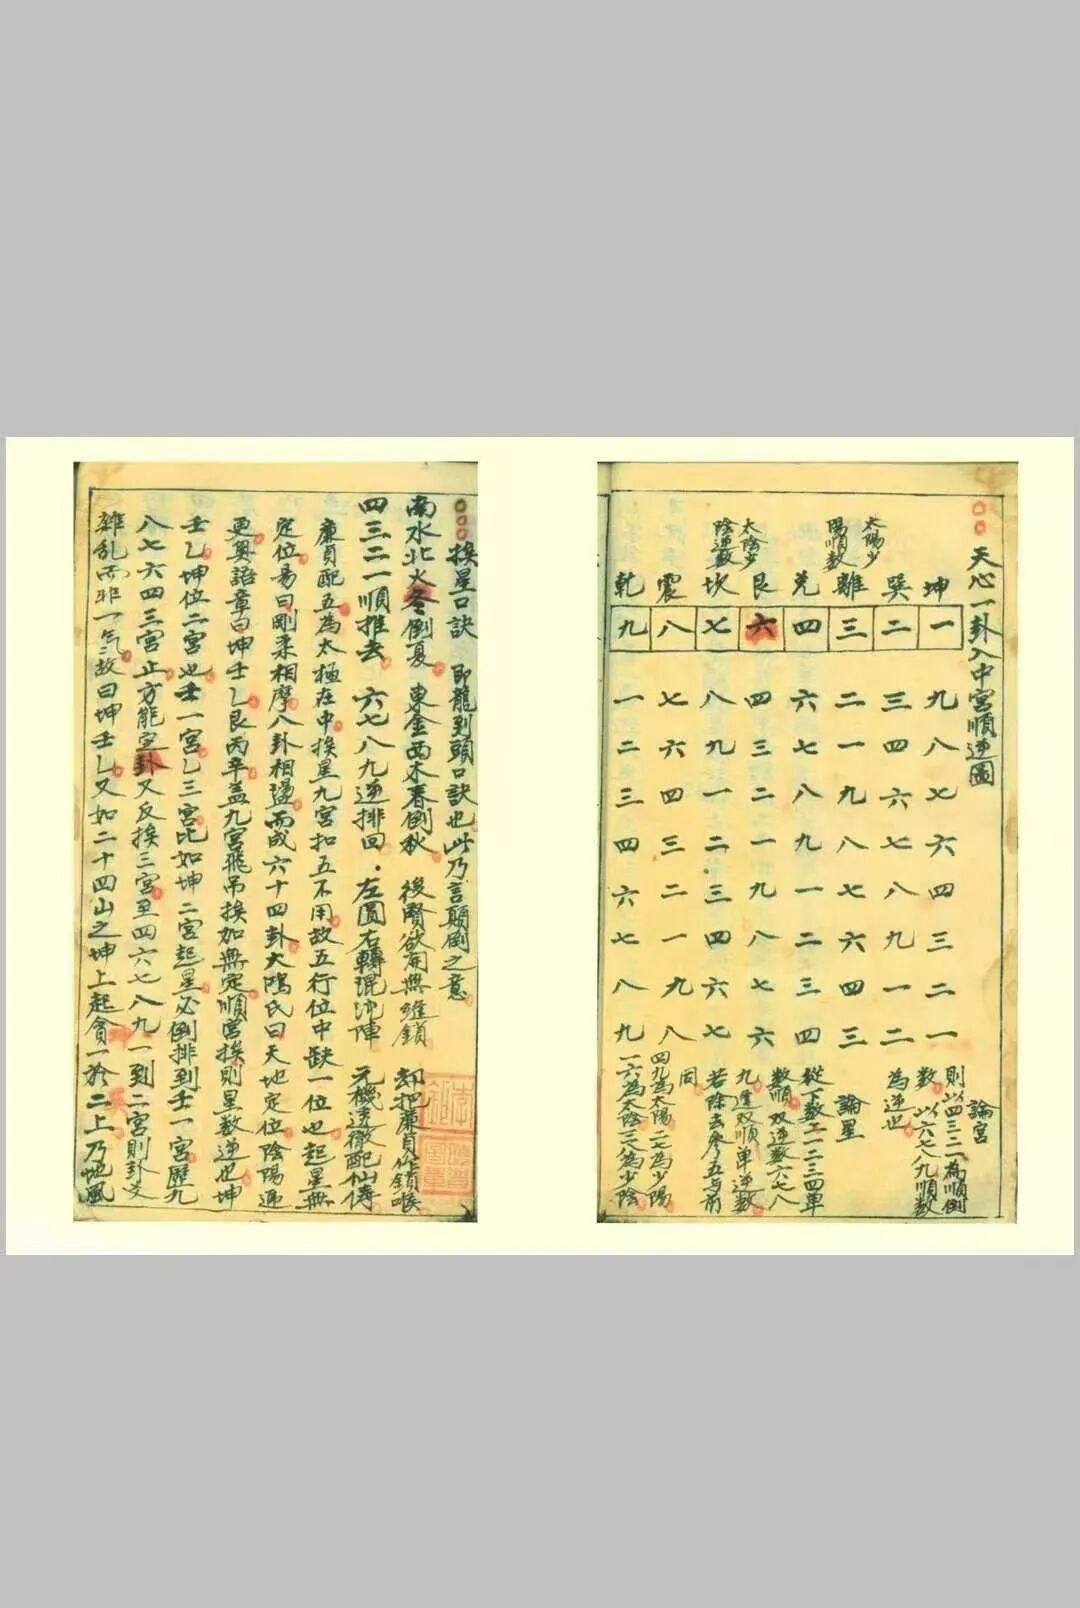 天心一卦入中宮順逆圖
太陽少
陽順數
太陰少
陰逆數
坤巽離兌艮坎震乾
一二三四六七八九
九三二六四八七一
八四一七三九六二
七六九八二一四三
六七八九一二三四
四八七一九三二六
三九六二八四一七
二一四三七六九八
一二三四六七八九
論宮
則以四三二一為順倒
数以六七八九順數
為逆也
論星
從下数一二三四單
數順双逆數六七八
九逆双順單逆數
若除去參五与前
同
四九為太陽二七為少陽
一六為太陰三八為少陰
挨星口訣 即龍到頭口訣也此乃言顛倒之意
南水北火冬倒夏 東金西木春倒秋 後賢欲開無縫鎖 却把廉貞作鎖喉
四三二一順推去 六七八九逆排回 左圓右轉混沌陣 元機透徹配仙儔
廉貞配五為太極在中挨星九宮扣五不用故五行位中缺一位也起星無
定位易曰剛柔相摩八卦相盪而成六十四卦大陽氏曰天地定位陰陽遞
更奥語章曰坤壬乙艮丙辛盖九宮飛吊挨加無定順宮挨則星数逆也坤
壬乙坤位二宮也壬一宮乙三宮比如坤二宮起星必倒排到壬一宮歷九
八七六四三宮止方能定卦又反挨三宮至四六七八九一到二宮則卦爻
雜乱而非一气故曰坤壬乙又如二十四山之坤上起貪一於二上乃地風